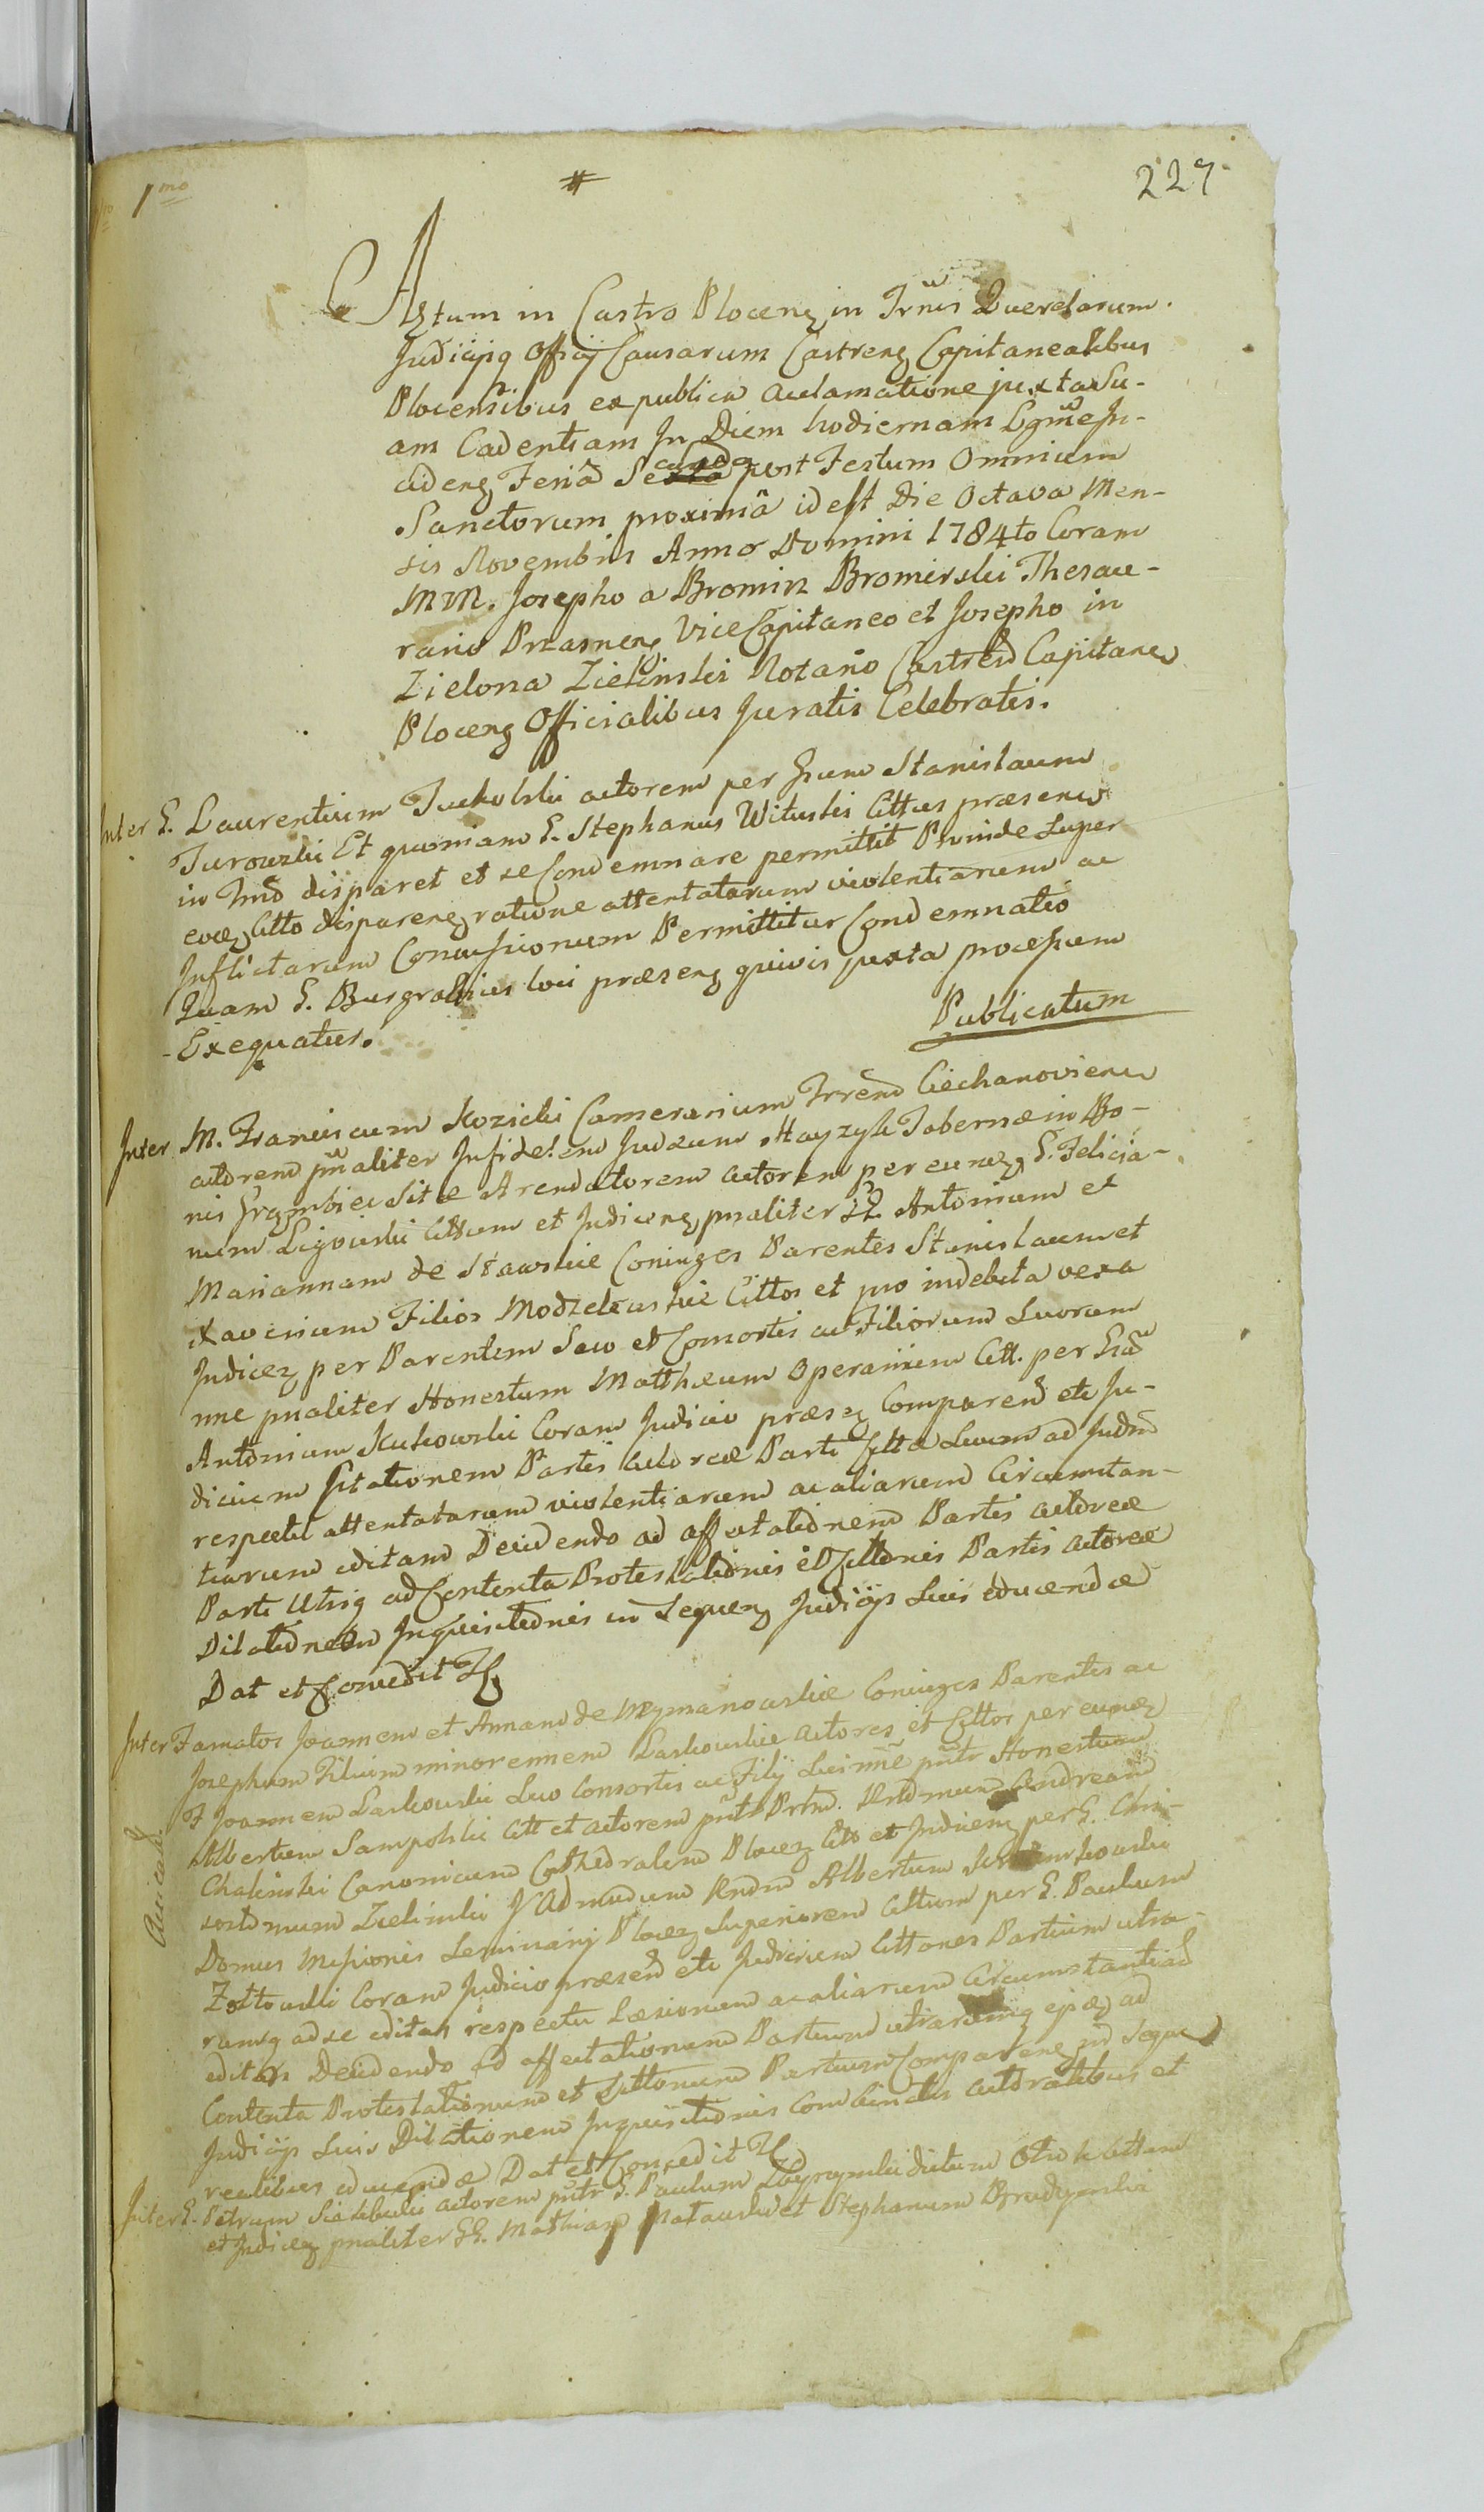 1mo
#
227
Actum in Castro Plocenʒ in Trñis Querelarum
Judicijsq Officij Causarum Castrenʒ Capitanealibus
Plocensibus ex publica acclamatione juxta Su-
am Cadentiam In Diem hodiernam Lgme In-
cidenʒ Feriâ Secunda post Festum Omnium
Sanctorum proximâ id est Die Octava Men-
sis Novembris Anno Domini 1784to Coram
MM. Josepho a Bromirz Bromirski Thesau-
rario Przasnenʒ Vice Capitaneo et Josepho in
Zielona Zielinski Notario Castren Capitaneo
Plocenʒ Officialibus Juratis Celebratis.
Inter G. Laurentium Tuchulski actorem per Gsum Stanislaum
Turowski Et quoniam G. Stephanus Wituski Cittus præsens
in Trmo disparet et se Condemnare permittit Proinde Super
eoʒ Citto disparenʒ ratione attentatarum violentiarum ac
Inflictarum Concussionum Permittitur Condemnatio
Quam G. Burgrabius loci præsenʒ quivis juxta processum
Exequatur.
Publicatum
Inter M. Franciscum Kozicki Camerarium Trrend Ciechanoviens
actorem pnaliter Infidelem Judæum Hayzyk Tabernæ in Bo-
nis Grzmbiec Sitæ Arendatorem actorem per eunʒ G. Felicia-
num Ligowski Cittum et Judicenʒ pnaliter GG. Antonium et
Mariannam de Stawskie Coniuges Parentes Stanislaum et
Xaverium Filios Modzelewskie Cittos et pro indebita vexa
Judiceʒ per Parentem Suo et Consortis ac Filiorum Suorum
nne pnaliter Honestum Matthæum Operarium Citt. per Gsum
Antonium Kukowski Coram Judicio præsʒ Comparend etc Ju-
dicium Citationem Partis actoreæ Parti Cittæ Suum ad Judm
respectu attentatarum violentiarum ac aliarum Circumstan-
tiarum editam Decidendo ad affectationem Partis actoreæ
Parti Utriq ad Contenta Protestationis et Cittonis Partis actoreæ
Dilationem Inquisitionis in Sequenʒ Judicijs Suis educendæ
Dat et Concedit
Inter Famatos Joannem et Annam de Mymanowskie Coniuges Parentes ac
Josephum Filium minorennem Laskowskie actores et Cittos per eunʒ
F Joannem Laskowski Suo Consortis ac Filij Sui nne pnitr Honestum
Albertum Sampolski Citt et actorem pnitr Prlm. Rndmum Andream
Chalinski Canonicum Cathedralem Plocenʒ Citt et Judicenʒ per G. Chri-
sostomum Zielinski Admodum Rndm Albertum
Domus Missionis Seminarij Plocenʒ Superiorem Cittum per G. Paulum
Zottowski Coram Judicio præsend etc Judicium Cittones Partium utra-
rumq ad se editas respectu Læsionum ac aliarum Circumstantiad
editas Decidendo ad affectationem Partium utrarumq ejsʒ ad
Contenta Protestationum et Cittonum Partium Comparenʒ in Seque
Judicijs Suis Dilationem Inquisitionis Conductis actoralibus et
realibus educendæ Dat et Concedit
Inter G. Petrum actorem pnitr G. Paulum dictum Cittum
et Judicenʒ pnaliter GG. Mathiam et Stephanum